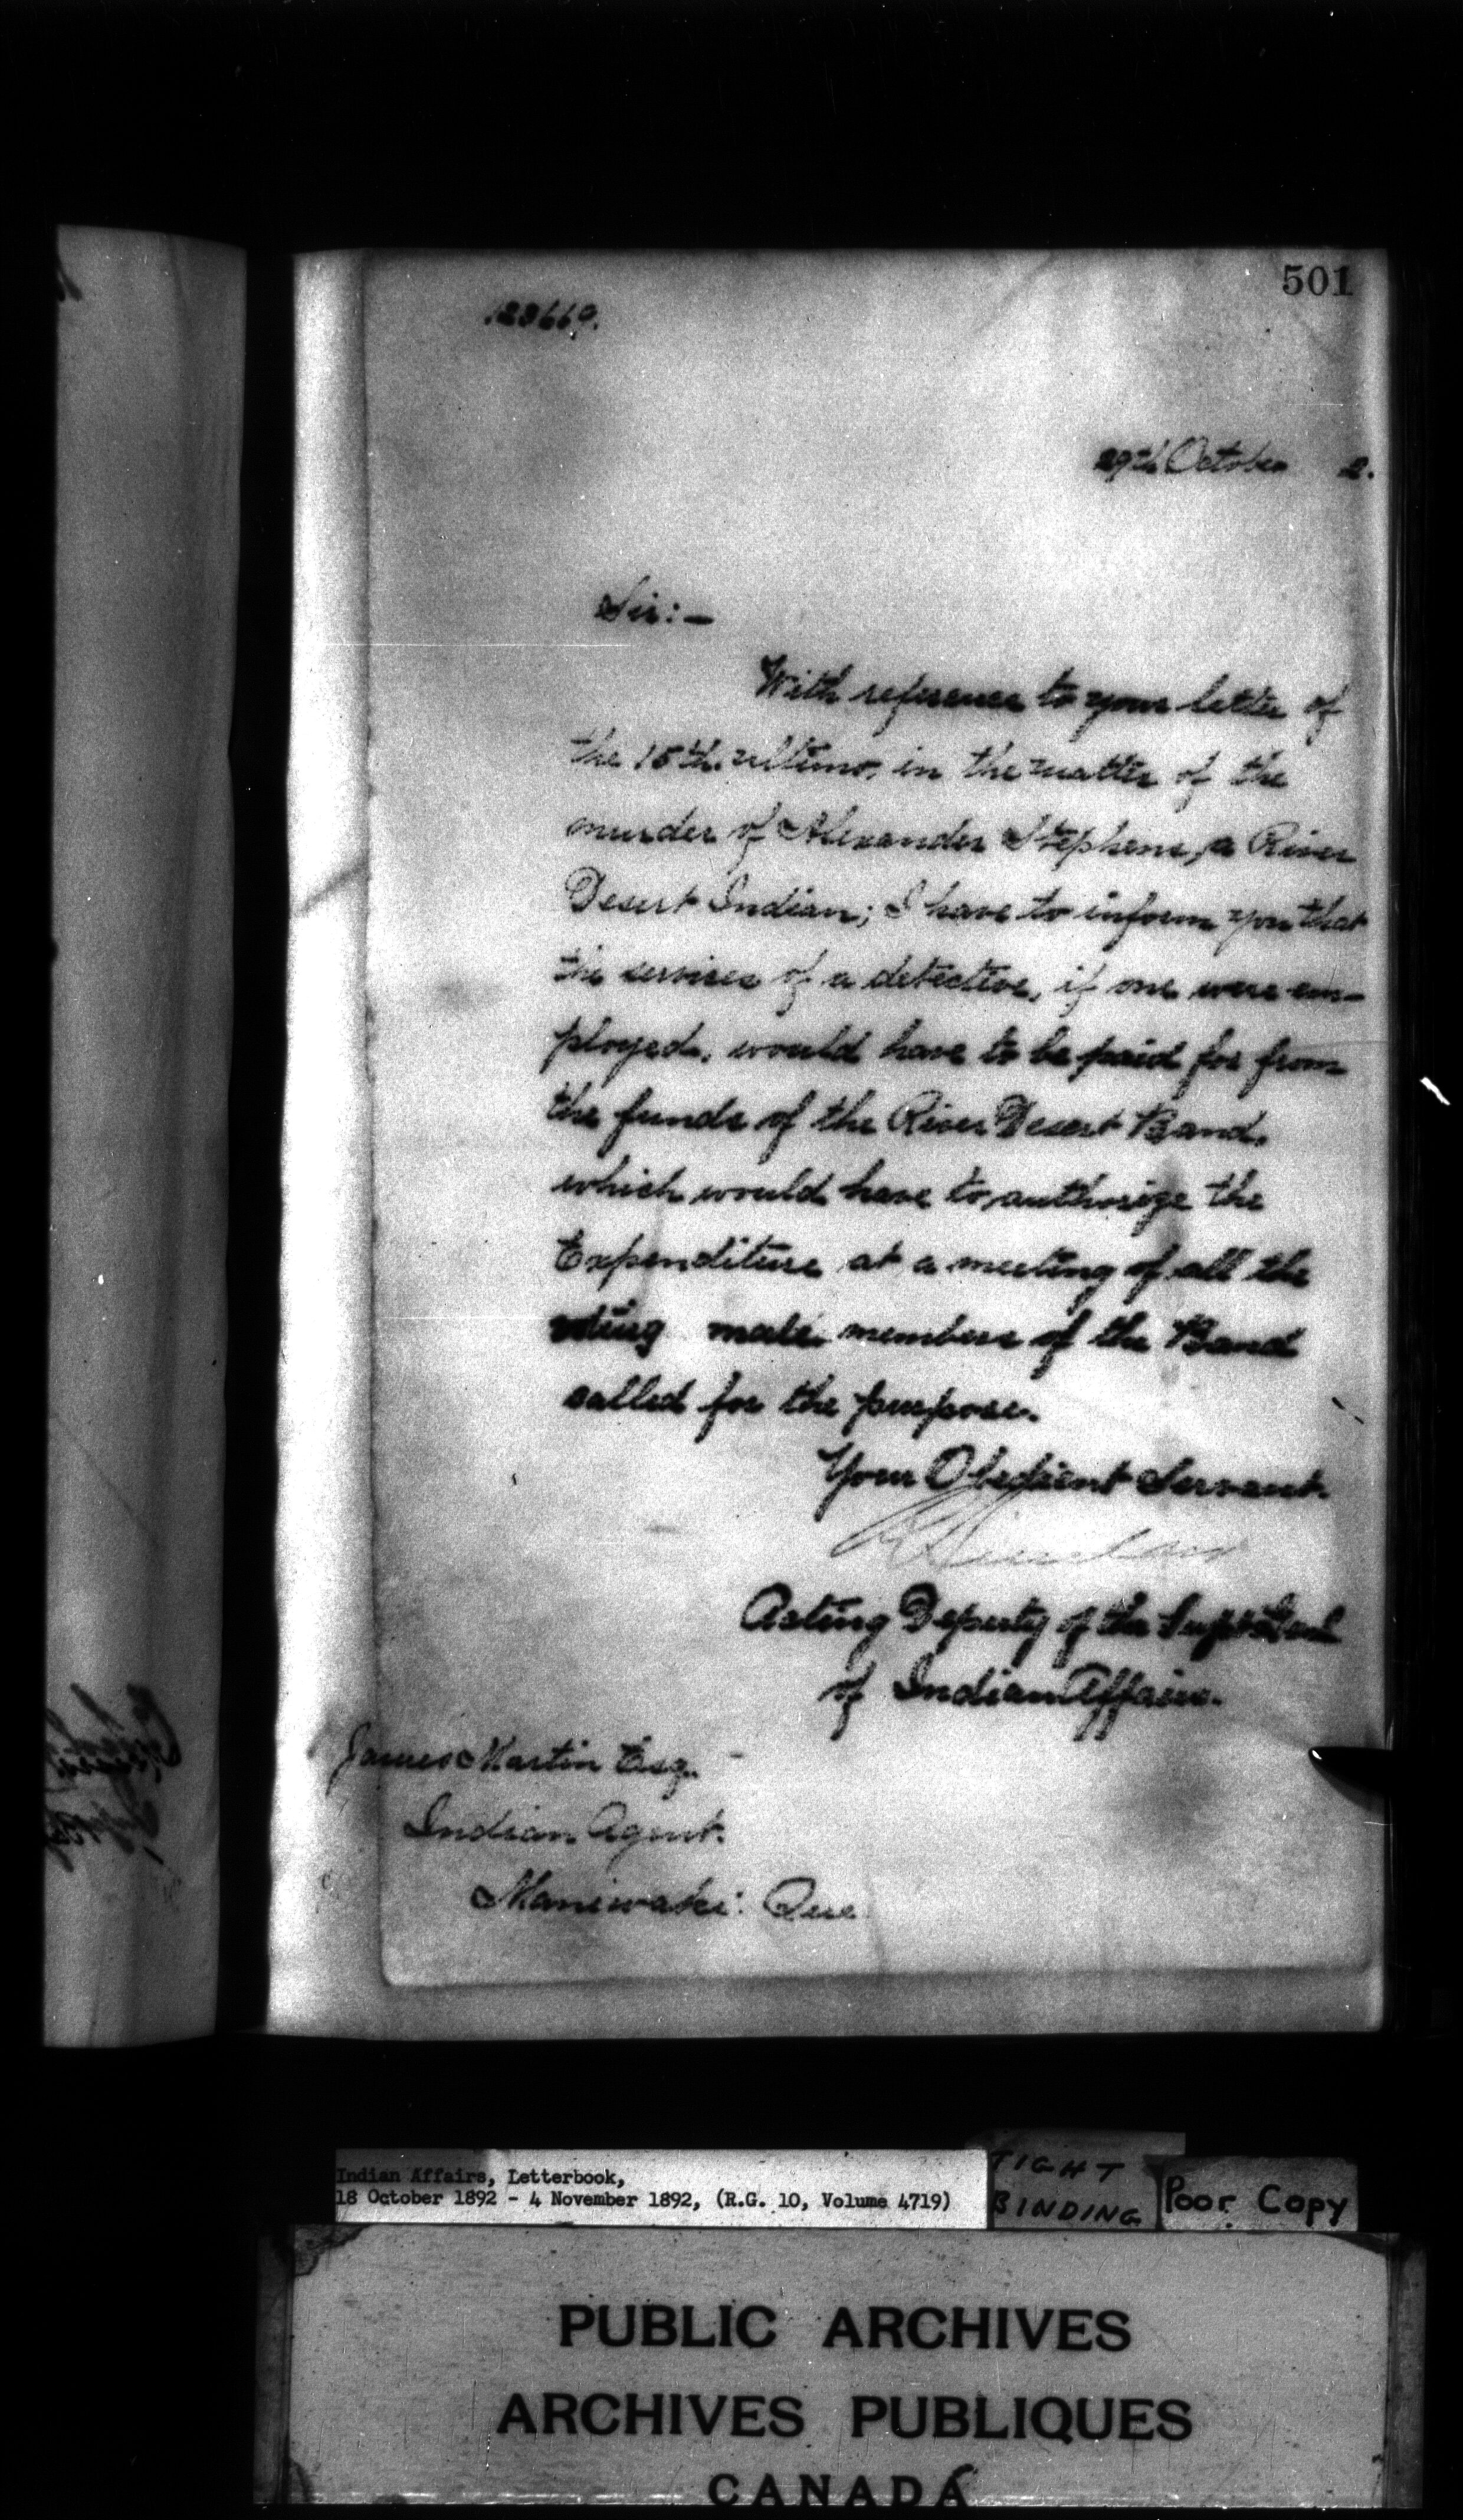 501
123660.
29th October 2.
Sir:-
With reference to your letter of
the 15th. ultimo, in the matter of the
murder of Alexander Stephens, a River
Desert Indian; I have to inform you that
the services of a detective, if one were em-
ployed, would have to be paid for from
the funds of the River Desert Band,
which would have to authorize the
Expenditure at a meeting of all the
voting male members of the Band
called for the purpose.
Your Obedient Servant.
Acting Deputy of the
of Indian Affairs.
James Martin Esq.
Indian Agent.
Maniwaki: Que
Indian Affairs, Letterbook,
18 October 1892 - 4 November 1892, (R.G. 10, Volume 4719)
TIGHT
BINDING
Poor Copy
PUBLIC ARCHIVES
ARCHIVES PUBLIQUES
CANADA